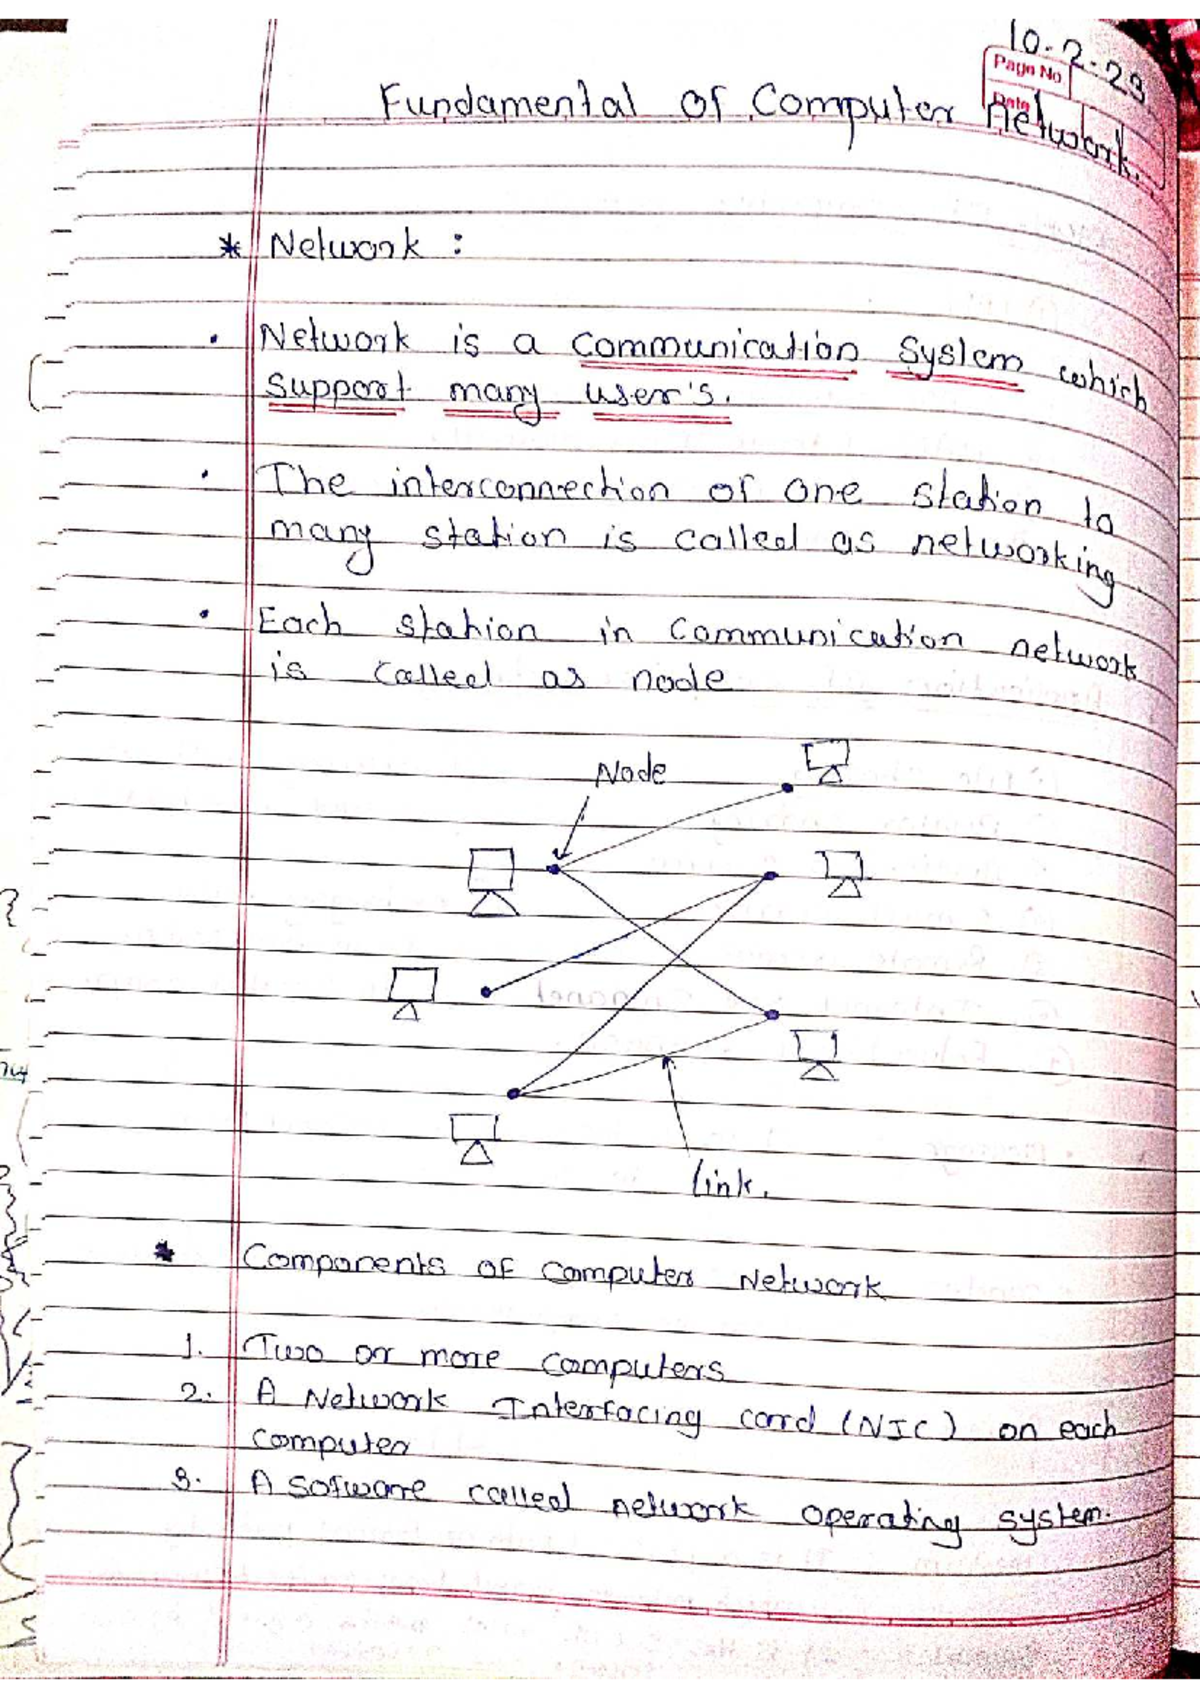 10-2-23
Page No
Date
Fundamental of Computer Network.
* Network :
• Network is a communication system which
support many user's.
• The interconnection of one station to
many station is called as networking
• Each station in communication network
is called as node
Node
Link.
* Components of computer Network
1. Two or more computers
2. A Network Interfacing card (NIC) on each
computer
3. A sofware called network operating system.